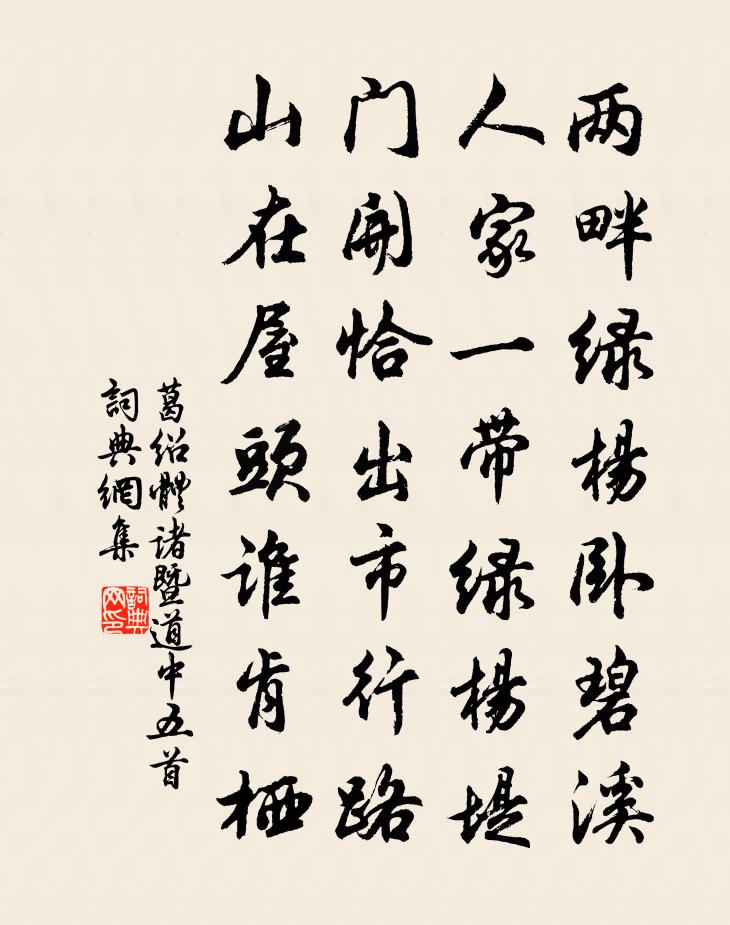 两畔绿楊卧碧溪
人家一带绿楊堤
门開恰出市行路
山在屋頭谁肯栖
葛绍體诸暨道中五首
詞典網集
詞典网印